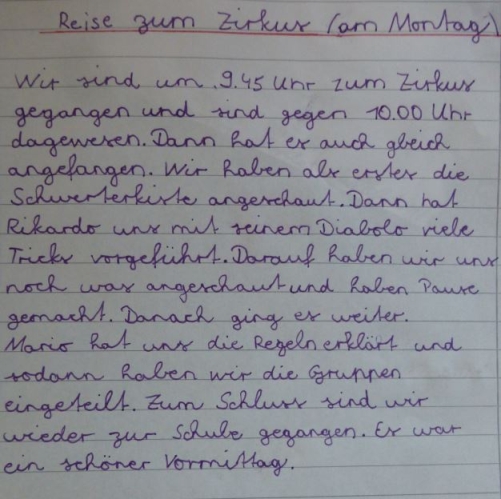 Reise zum Zirkus (am Montag)
Wir sind um 9.45 Uhr zum Zirkus
gegangen und sind gegen 10.00 Uhr
dagewesen. Dann hat es auch gleich
angefangen. Wir haben als erstes die
Schwerterkiste angeschaut. Dann hat
Rikardo uns mit seinem Diabolo viele
Tricks vorgeführt. Darauf haben wir uns
noch was angeschaut und haben Pause
gemacht. Danach ging es weiter.
Mario hat uns die Regeln erklärt und
sodann haben wir die Gruppen
eingeteilt. Zum Schluss sind wir
wieder zur Schule gegangen. Es war
ein schöner Vormittag.